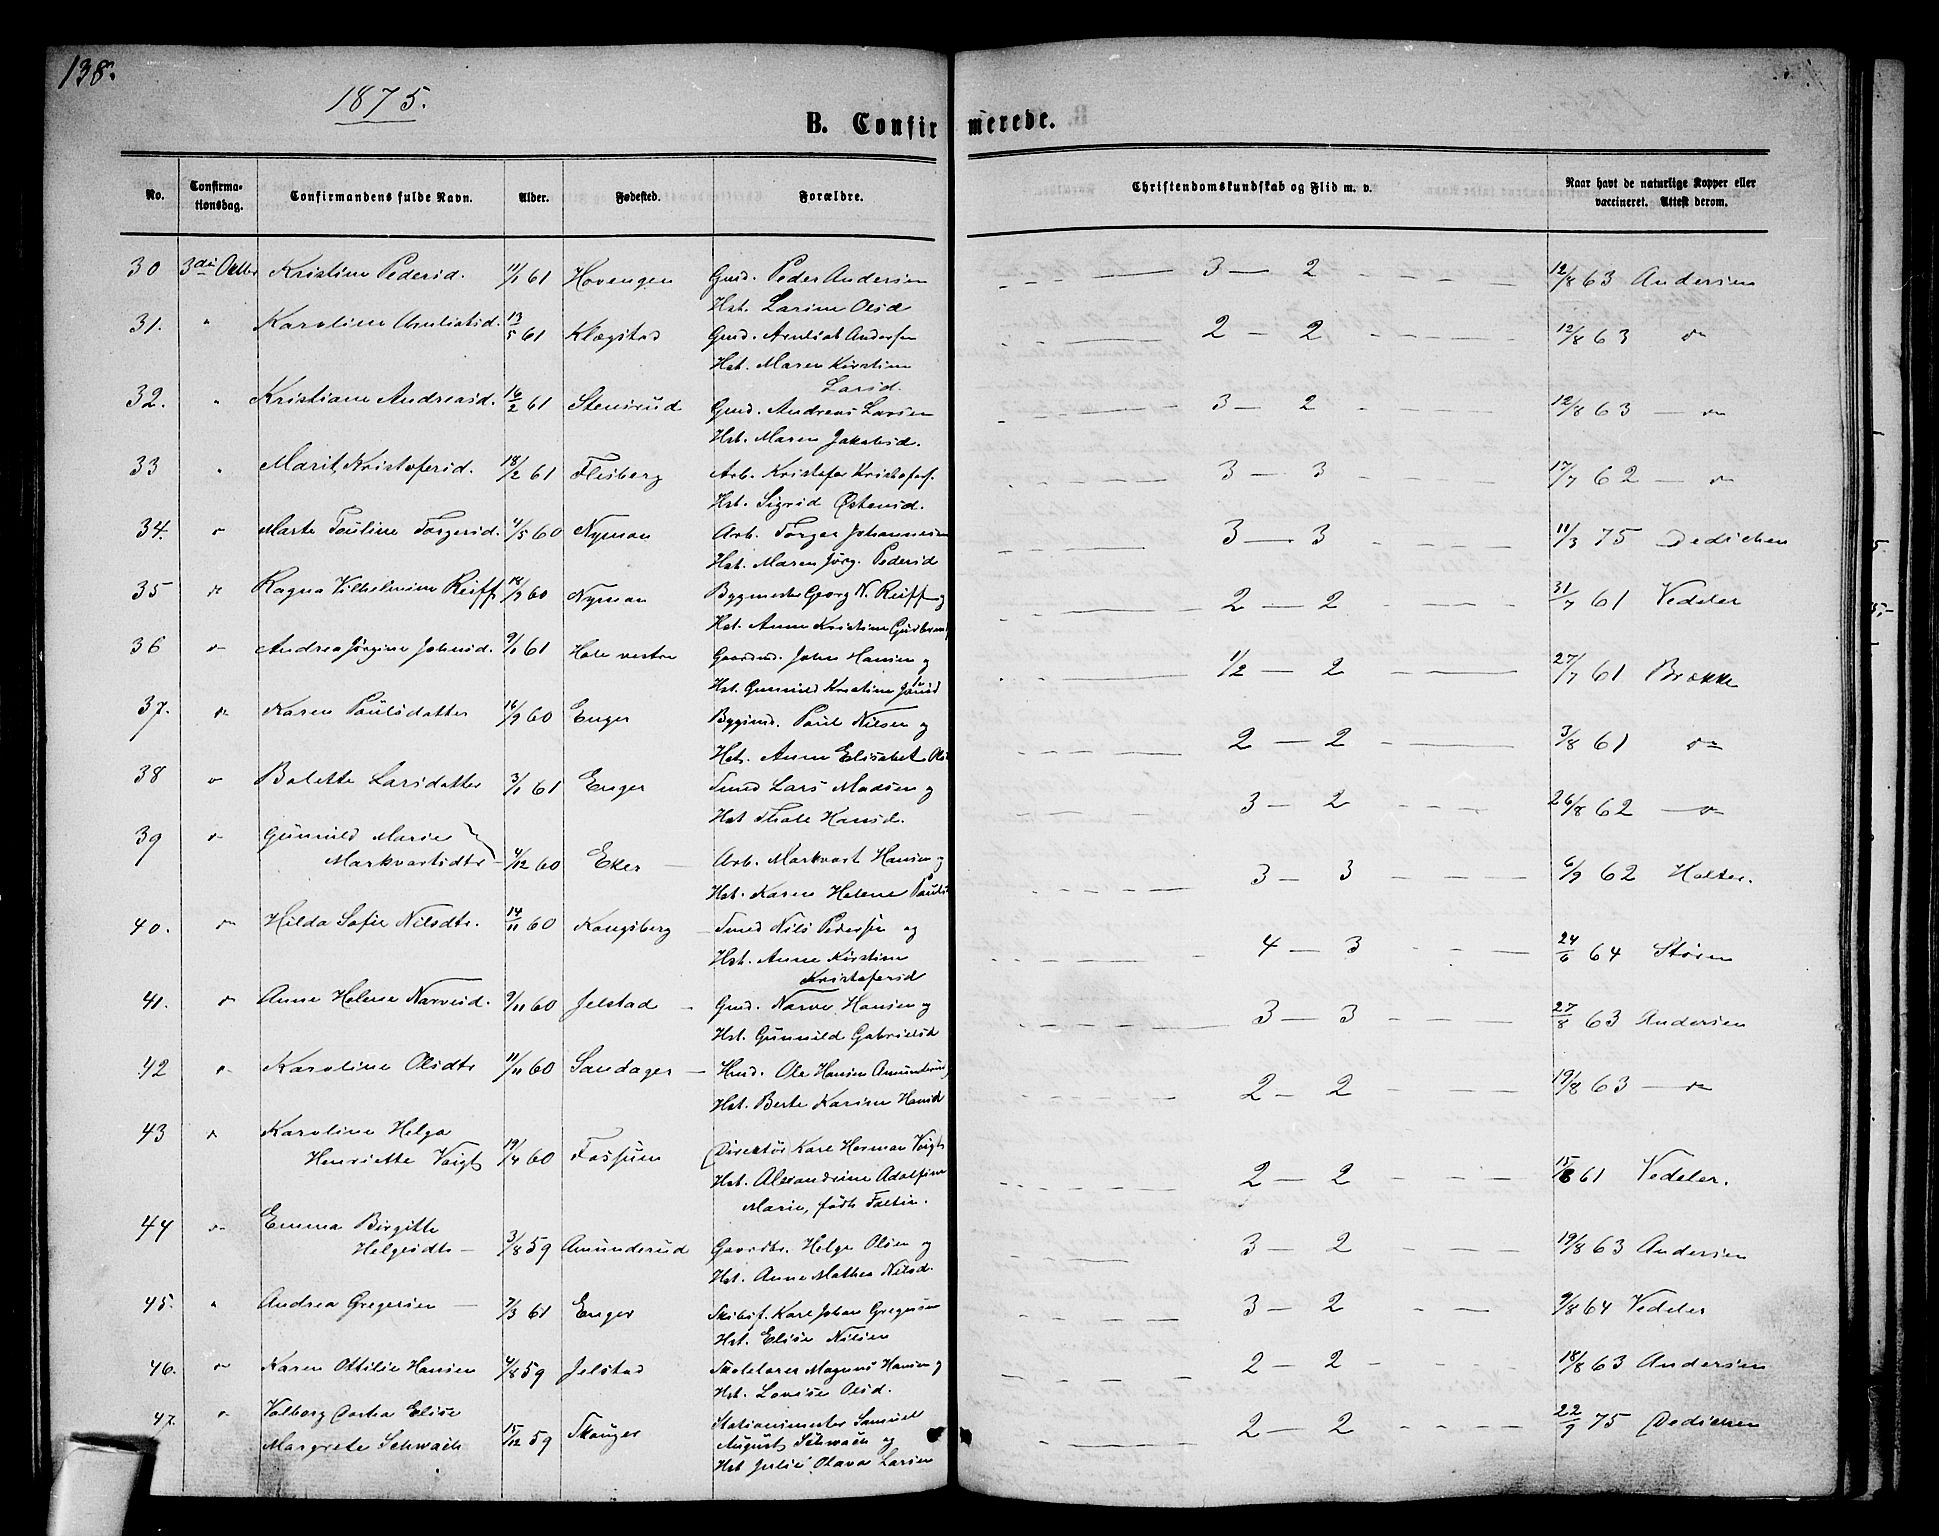 138.
1875.
B. Confirmerede.
No. Confirmationsdag. Confirmandens fulde Navn. Alder. Fødested. Forældre. Christendomskundskab og Flid m. v. Naar havt de naturlige Kopper eller vaccineret. Attest derom.
30 3die Octbr Kristine Pedersd. 11/1 61 Hovengen Gmd. Peder Andersen 3 — 2 12/8 63 Andersen
Hst. Larine Olsd
31. " Karoline Arnliotsd. 13/5 61 Klægstad Gmd. Arnliot Andersen 2 — 2 12/8 63 do
Hst. Maren Kirstine
Larsd.
32. " Kristiane Andreasd. 16/2 61 Stensrud Gmd. Andreas Larsen 3 — 2 12/8 63 — do
Hst. Maren Jakobsd.
33 " Marit Kristofersd. 18/2 61 Flesberg Arb. Kristofer Kristofers. 3 — 3 17/7 62 — do
Hst. Sigrid Østensd.
34. do Marte Pauline Torgersd. 4/5 60 Nymoen Arb. Torger Johannesen 3 — 3 11/3 75 Dedichen
Hst. Maren Jørg. Pedersd
35 do Ragna Vilhelmine Reiff 18/9 60 Nymoen Bygmester Georg N. Reiff og 2 — 2 31/7 61 Vedeler
Hst. Anne Kristine Gudbrands
36 do Andrea Jørgine Johnsd. 9/1 61 Hole vestre Gaardmd. John Hansen og 1/2 — 2 27/7 61 Brække
Hst. Gunnild Kristine
37. do Karen Paulsdatter 16/9 60 Enger Bygmd. Paul Nilsen og 2 — 2 3/8 61 do
Hst. Anne Elisabet Ols
38 do Bolette Larsdatter 3/1 61 Enger Smed Lars Madsen og 3 — 2 26/8 62 — do
Hst Thale Hansd.
39 do Gunnild Marie
Markvartsdtr 4/12 60 Eker — Arb. Markvart Hansen og 3 — 3 6/9 62 Holter.
Hst. Karen Helene Pauls
40. do Hilda Sofie Nilsdtr. 14/11 60 Kongsberg — Smed Nils Pedersen og 4 — 3 24/6 64 Støren
Hst. Anne Kirstine
Kristofersd
41. do Anne Helene Narvesd. 9/11 60 Jelstad — Gmd. Narve Hansen og 3 — 3 27/8 63 Andersen
Hst. Gunnild Gabrielsd
42 do Karoline Olsdtr 11/11 60 Sandager — Hmd. Ole Hansen Amunderud 2 — 2 19/8 63 — do
Hst. Berte Karine Hansd
43 do Karoline Helga
Henriette Voigt 19/4 60 Fossum Direktør Karl Herman Voigt 2 — 2 15/8 61 Vedeler.
Hst. Alexandrine Adolfine
Marie, født Faltin.
44 do Emma Birgitte
Helgesdtr — 3/8 59 Amunderud Gaardbr. Helge Olsen og 3 — 2 19/8 63 Andersen
Hst. Anne Mathea Nilsd.
45. " Andrea Gregersen — 7/3 61 Enger Skibsf. Karl Johan Gregersen 3 — 2 9/8 64 Vedeler
Hst. Elise Nilsen
46. do Karen Ottilie Hansen 4/8 59 Jelstad Skolelærer Magnus Hansen og 2 — 2 18/8 63 Andersen
Hst. Lovise Olsd.
47. do Valborg Dortea Elise
Margrete Schwach 15/12 59 Skonger Stationsmester Samuel 2 — 2 22/9 75 Dedichen
August Schwach og
Hst Julie Olava Larsen